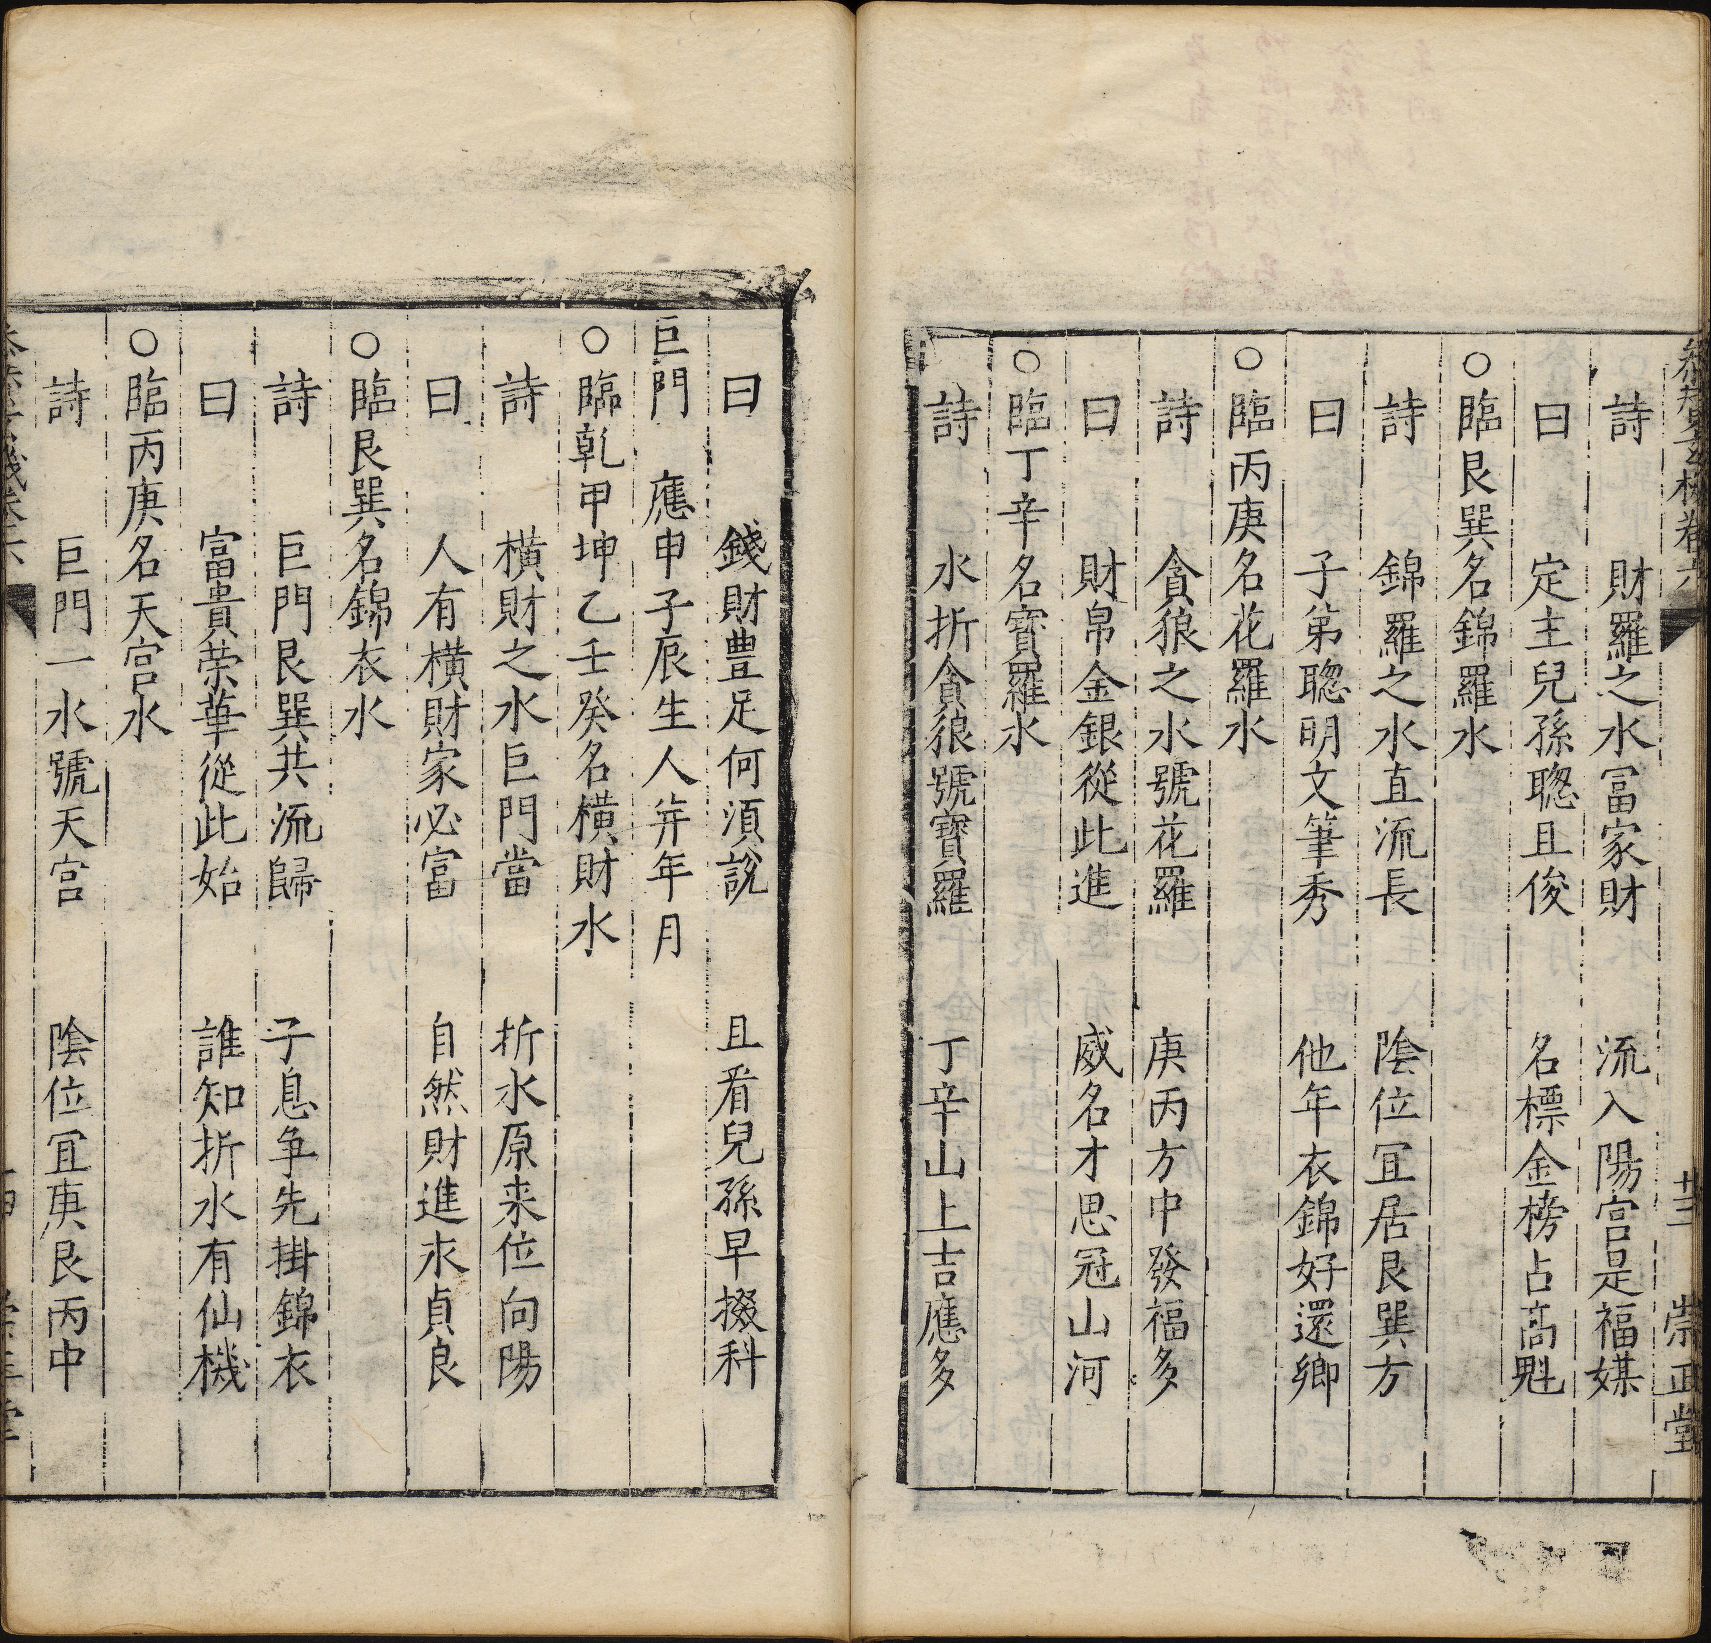 卷六
廿三
崇正堂
詩 財羅之水冨家財 流入陽宫是福媒
曰 定主兒孫聦且俊 名標金榜占高魁
○臨艮巽名錦羅水
詩 錦羅之水直流長 陰位冝居艮巽方
曰 子弟聦明文筆秀 他年衣錦好還鄉
○臨丙庚名花羅水
詩 貪狼之水號花羅 庚丙方中發福多
曰 財帛金銀從此進 威名才思冠山河
○臨丁辛名寳羅水
詩 水折貪狼號寳羅 丁辛山上吉應多
曰 錢財豊足何須說 且看兒孫早掇科
巨門 應申子辰生人并年月
○臨乾甲坤乙壬癸名橫財水
詩 橫財之水巨門當 折水原来位向陽
曰 人有橫財家必富 自然財進永貞良
○臨艮巽名錦衣水
詩 巨門艮巽共流歸 子息争先掛錦衣
曰 富貴荣華從此始 誰知折水有仙機
○臨丙庚名天宫水
詩 巨門一水號天宫 陰位冝庚艮丙中